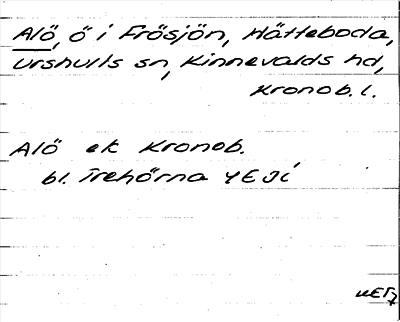 Alö, ö i Frösjön, Hätteboda,
Urshults sn, Kinnevalds hd,
Kronob. l.
Alö ek Kronob.
bl. Trehörna